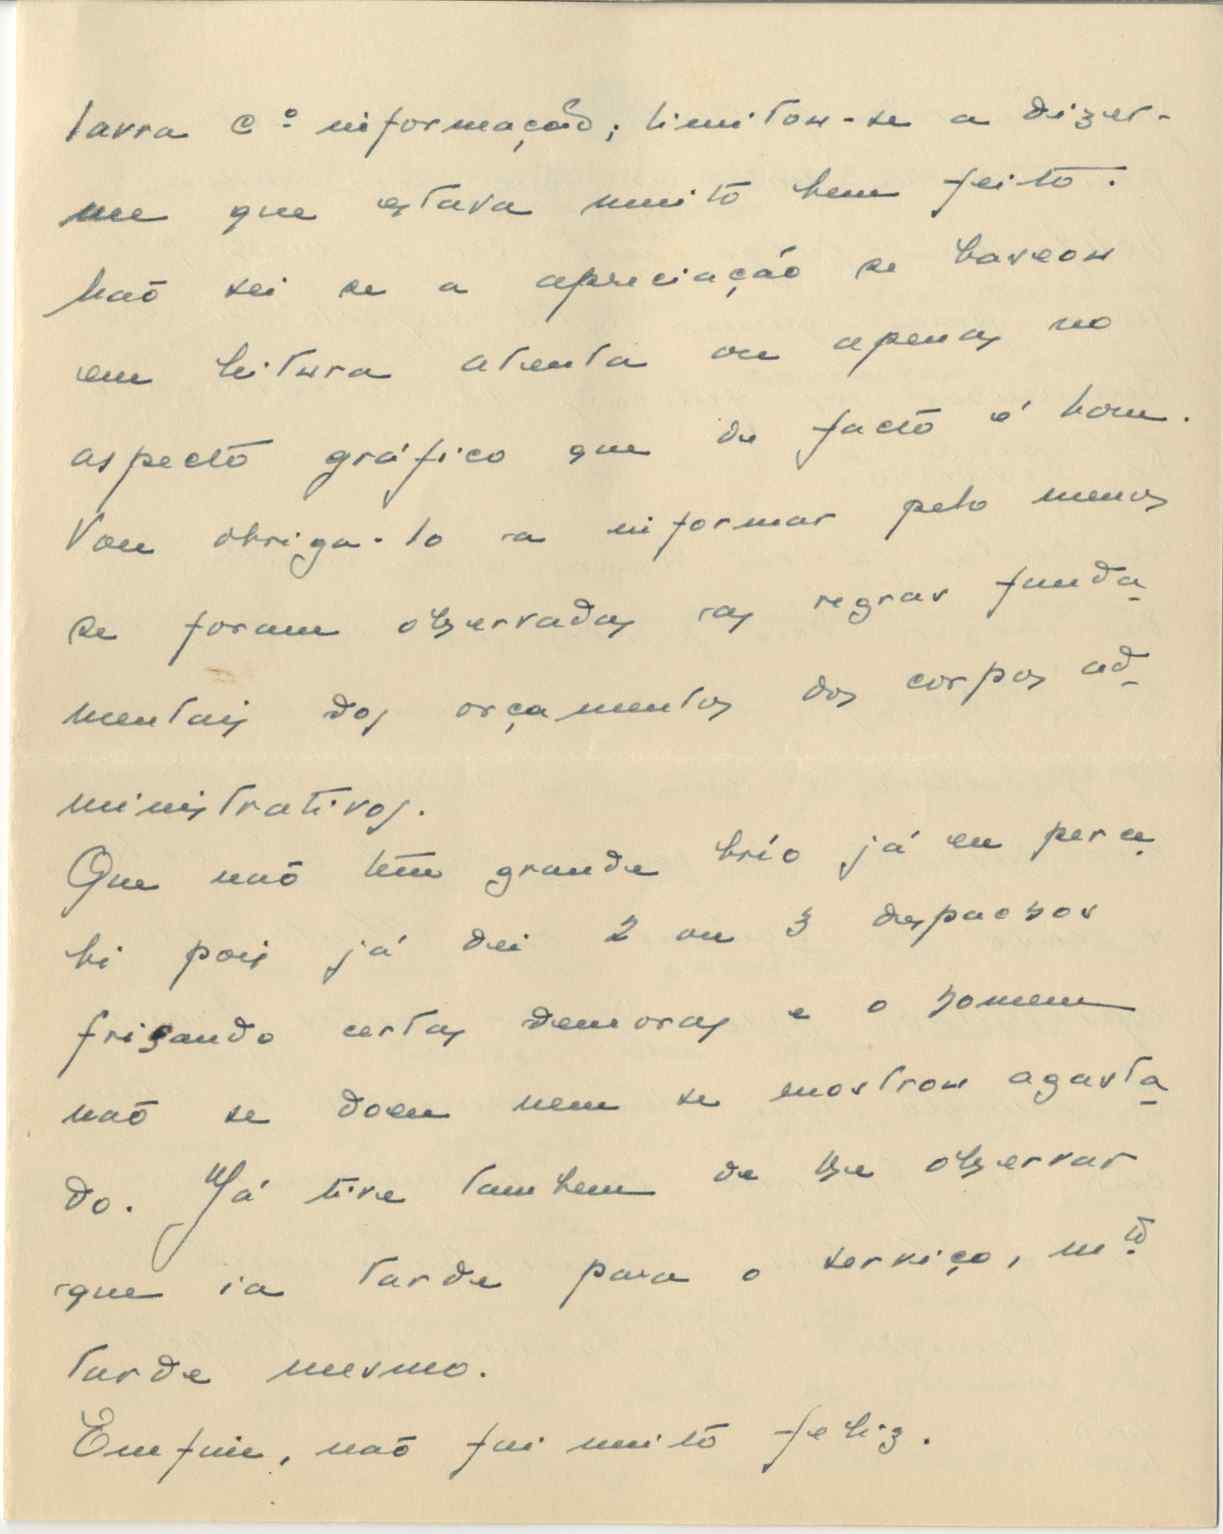 lavra cº informação; limitou-se a dizer-
me que estava muito bem feito.
Não sei se a apreciação se baseou
em leitura atenta ou apenas no
aspecto gráfico que de facto é bom.
Vou obriga-lo a informar pelo menos
se foram observadas as regras funda-
mentais dos orçamentos dos corpos ad-
ministrativos.
Que não tem grande brío já eu perce-
bi pois já dei 2 ou 3 despachos
frisando certas demoras e o homem
não se doeu nem se mostrou agasta-
do. Já tive tambem de lhe observar
que ia tarde para o serviço, mtº
tarde mesmo.
Emfim, não fui muito feliz.